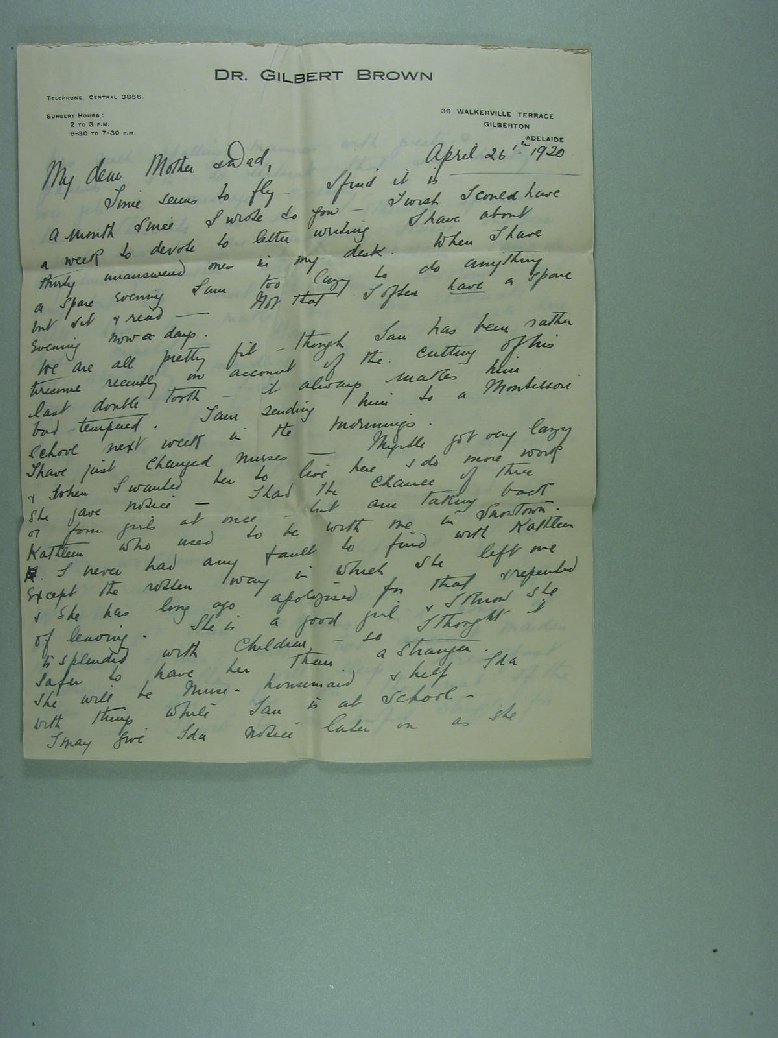 DR. GILBERT BROWN
TELEPHONE CENTRAL 3866.
SURGERY HOURS:
2 TO 3 P.M.
6-30 TO 7-30 P.M.
36 WALKERVILLE TERRACE
GILBERTON
ADELAIDE
April 26th 1920
My dear Mother and Dad,
Time seems to fly - I find it is
a month since I wrote to you - I wish I could have
a week to devote to letter writing I have about
thirty unanswered ones in my desk. When I have
a spare evening I am too lazy to do anything
but sit & read - Not that I often have a spare
evening now a days.
We are all pretty fit - though Ian has been rather
tiresome recently on account of the cutting of his
last double tooth - it always makes him
bad tempered. I am sending him to a Montessori
School next week in the mornings.
I have just changed nurses - Myrtle got very lazy
& when I wanted her to live here & do more work
she gave notice - I had the chance of three
or four girls at once - but am taking back
Kathleen who used to be with me in Snowtown.
I never had any fault to find with Kathleen
except the rotten way in which she left me
& she has long ago apologised for that & repented
of leaving. She is a good girl & I know she
is splendid with children - so I thought it
safer to have her than a stranger.
She will be Nurse - housemaid & help Ida
with things while Ian is at School -
I may give Ida notice later on as she